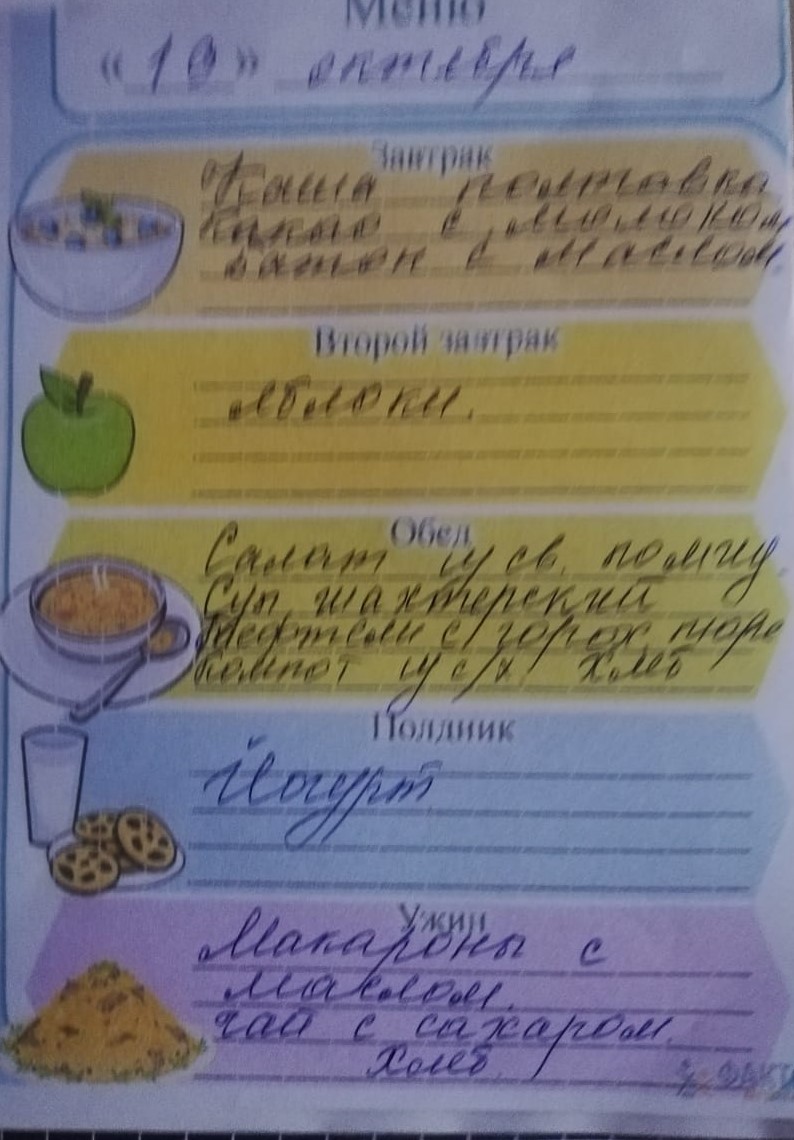 Меню
«10» октября
Завтрак
Каша полтавка
Какао с молоком
батон с маслом.
Второй завтрак
яблоки.
Обед
Салат из св. помид.
Суп шахтерский
Тефтели с горох. пюре
Компот из с/х хлеб
Полдник
Йогурт
Ужин
Макароны с
маслом.
чай с сахаром.
хлеб